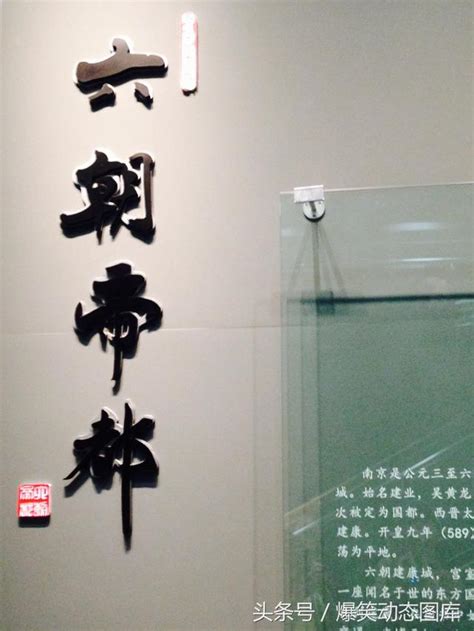 六朝帝都
南京是公元三至六
城。始名建业，吴黄龙
次被定为国都。西晋太
建康。开皇九年（589）
荡为平地。
六朝建康城，宫室
一座闻名于世的东方国
头条号／爆笑动态图库